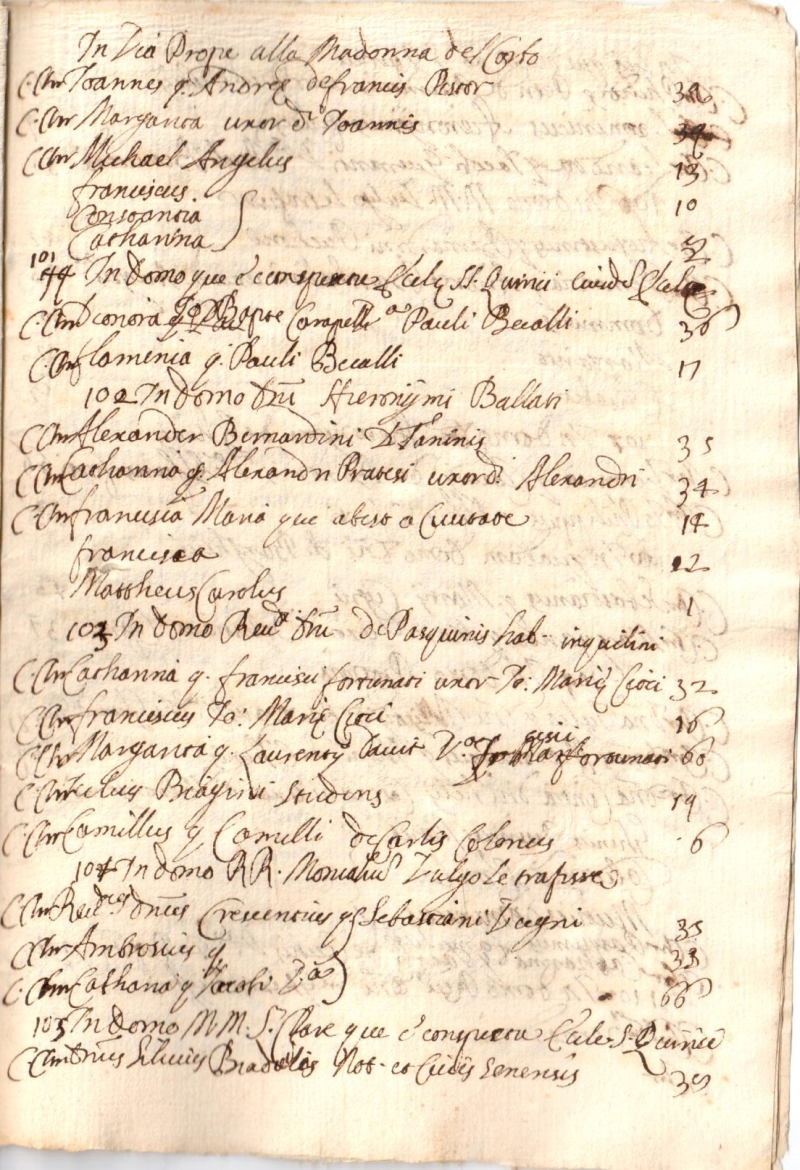 In Via Prope alla Madonna del Corto
C. Chr Joannes q. Andreę de francis Pistor 38
C. Chr Margarita uxor d. Joannis 34
C Chr Michael Angelus 13
franciscus 10
Constantia
Catharina
101 In domo que è conspectu Eccle S. Quirici eiusd Eccle
C. Chr q. Bapte Carapelli Pauli Becalli 36
C. Chr flaminia q. Pauli Becalli 17
102 In domo Dni Hieronymi Ballati
C Chr Alexander Bernardini 35
C Chr Catharina q. Alexandri Pratesi uxor d. Alexandri 34
C. Chr francisca Maria que abest a Civitate 14
francisca 12
Mattheus Carolus 1
103 In domo Reud Dni de Pasquinis hab. inquilini
C. Chr Catharina q. francisci fortunati uxor Jo: Marię Cioci 32
C. Chr franciscus Jo: Marię Cioci 16
C Chr Margarita q. Laurentij Vᵃ fortunati 60
C. Chr Biagini Studens 19
C. Chr Camillus q. Camilli de Carlis 6
104 In domo RR. Monialiu Vulgo Le trafisse
C. Chr Reud Dnus Crescentius q. Sebastiani 35
C Chr Ambrosius q. 33
C. Chr Cathana q. Jacobi Vᵃ 66
105 In domo MM. S. Clare que è conspectu Eccle S. Quirici
C Chr Dnus Silvius Not. et Civis Senensis 39